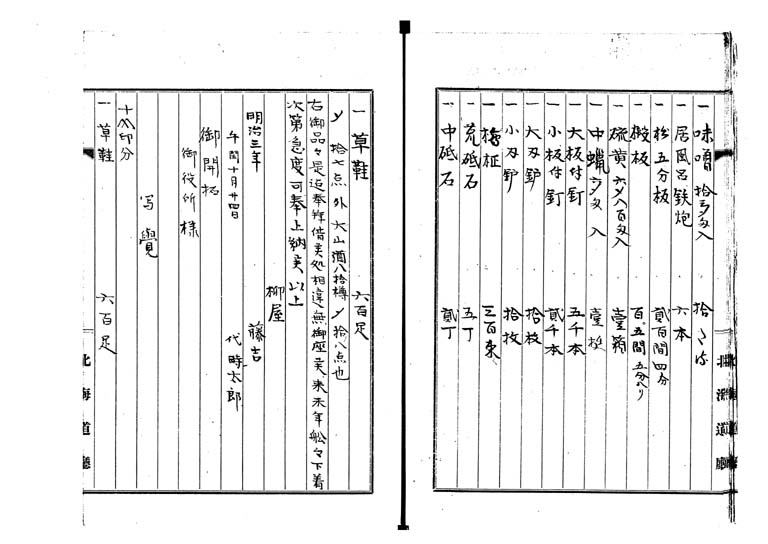 一 味噌 拾三〆匁入 拾
一 居風呂鉄炮 六本
一 松五分板 貳百間四分
一 椴板 百五間五分
一 硫黄六〆八百匁入 壹箱
一 中蠟六〆匁入 壹挺
一 大板付釘 五千本
一 小板付釘 貳千本
一 大刃鈩 拾枚
一 小刃鈩 拾枚
一 柾 三百束
一 荒砥石 五丁
一 中砥石 貳丁
北海道廳
一 草鞋 六百足
〆 拾七点外 大山酒八拾樽 〆拾八点也
右御品々是迄奉拜借美処相違無御座美来未年舩々下着
次第急度可奉上納美以上
柳屋
明治三年 藤吉
午閏十月廿四日 代時太郎
御開拓
御役所様
写 覺
十 印分
一 草鞋 六百足
北海道廳